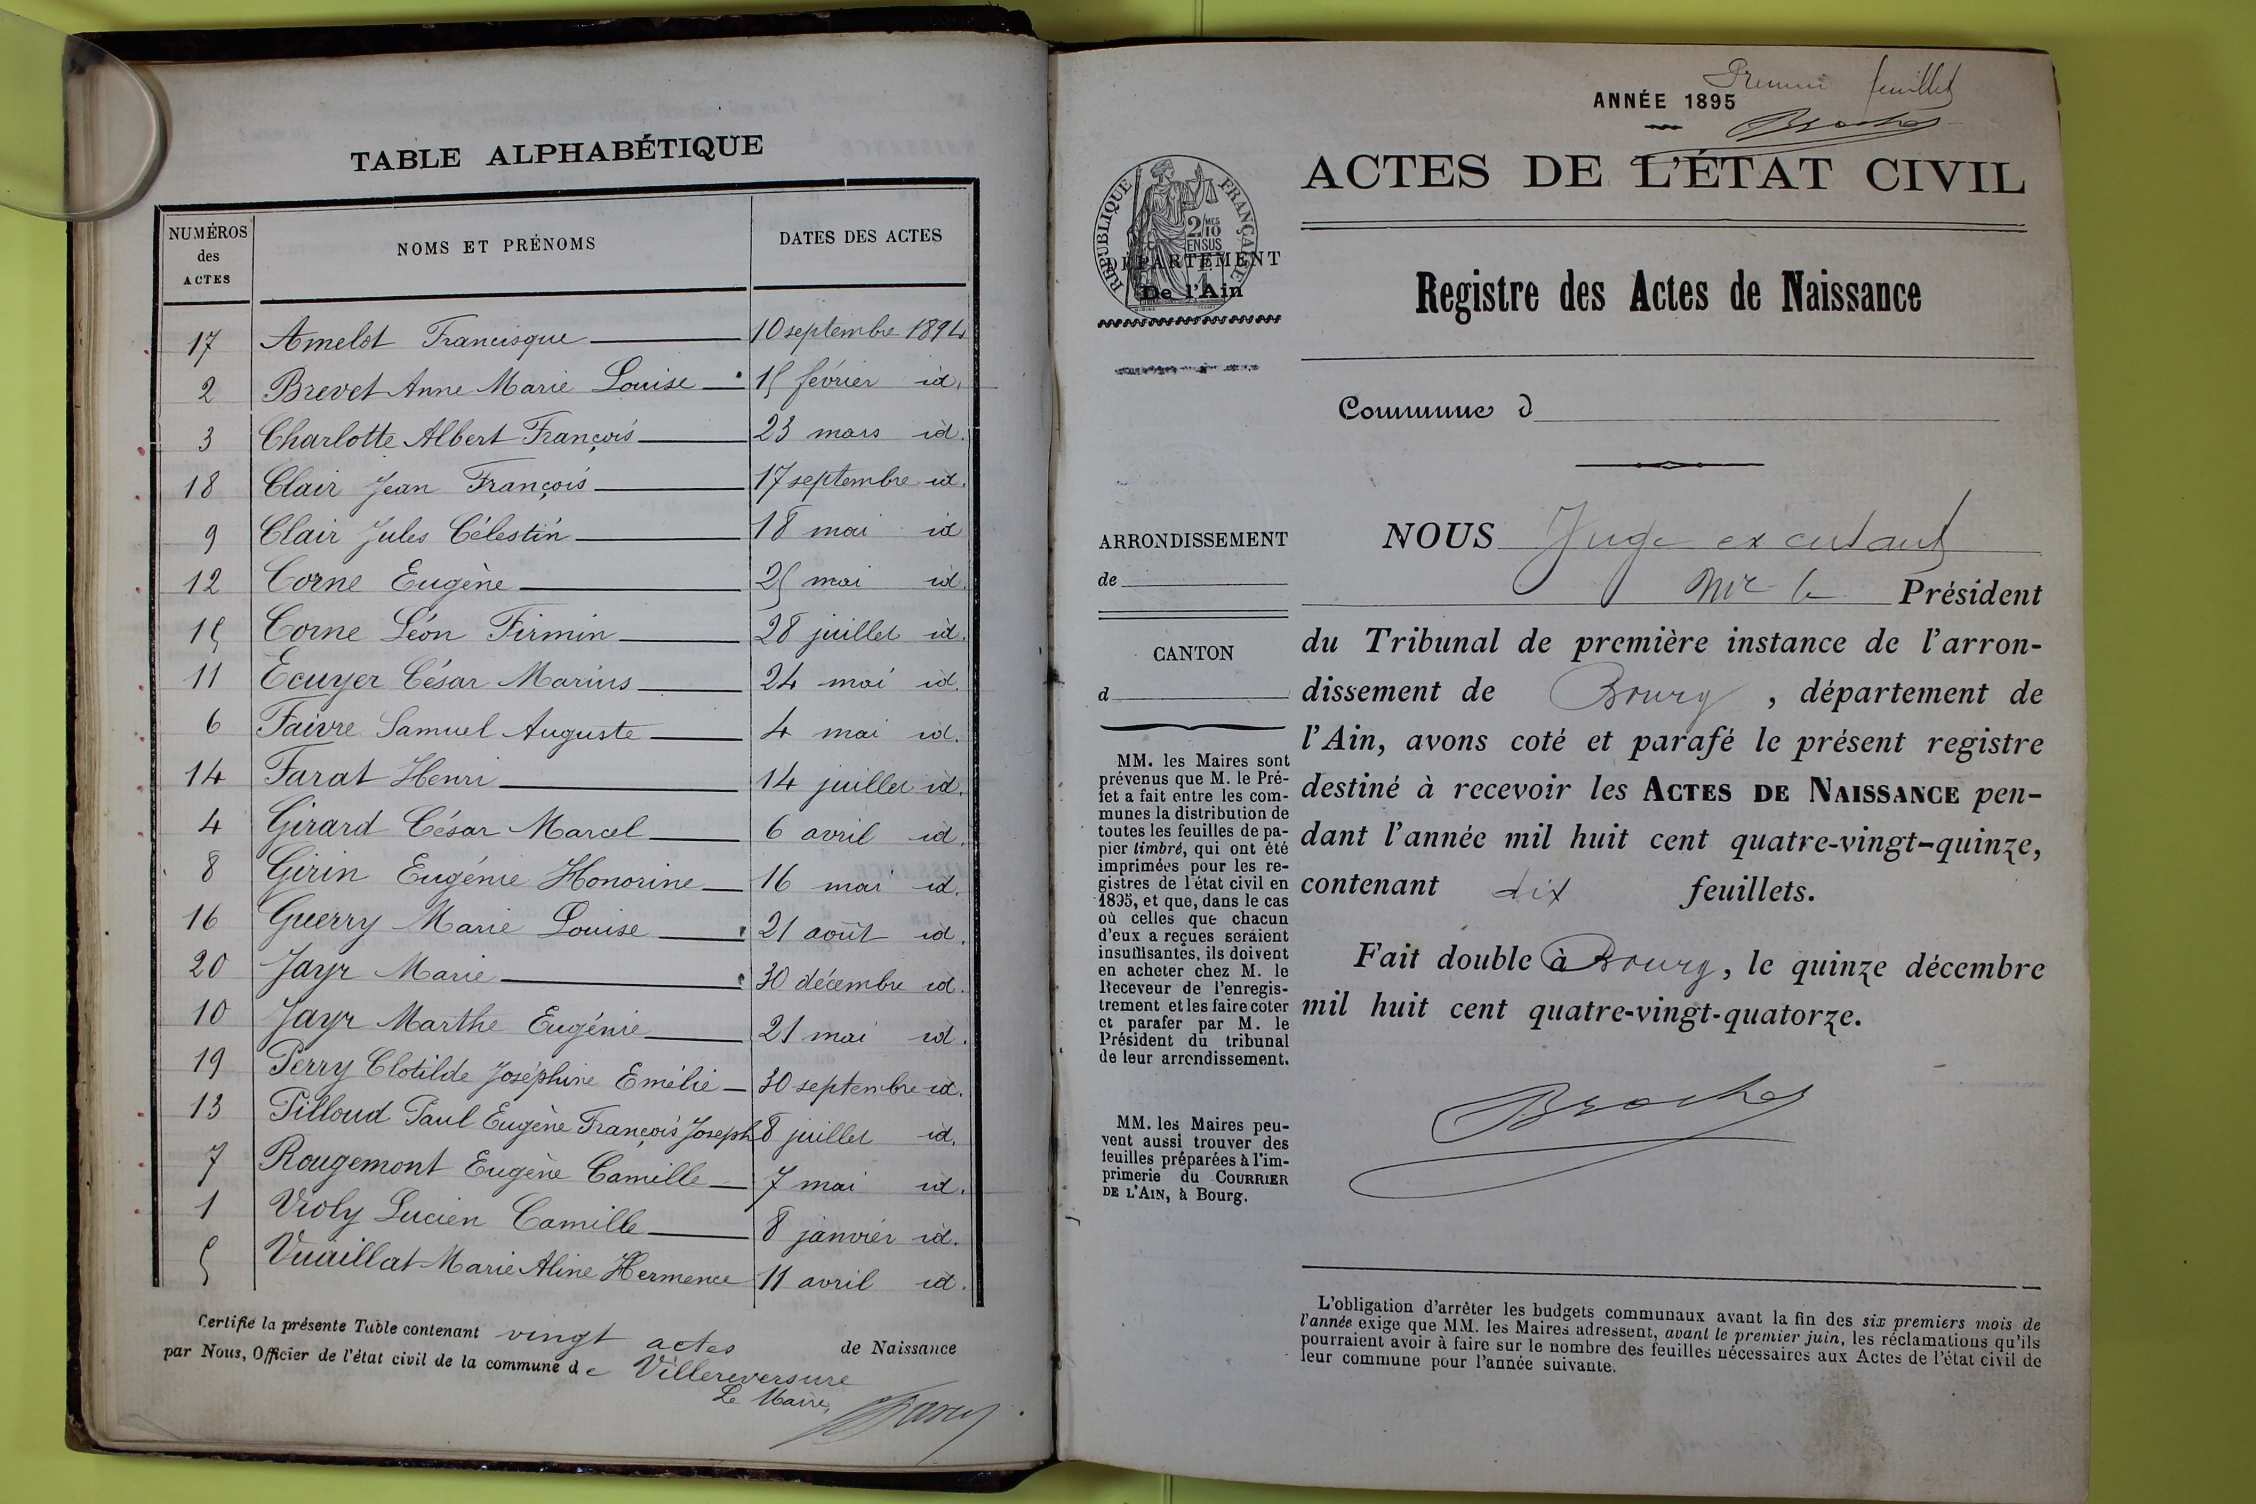 TABLE ALPHABÉTIQUE
NUMÉROS des ACTES NOMS ET PRÉNOMS DATES DES ACTES
17 Amelot Francisque 10 septembre 1894
2 Brevet Anne Marie Louise 15 février id.
3 Charlotte Albert François 23 mars id.
18 Clair Jean François 17 septembre id.
9 Clair Jules Célestin 18 mai id
12 Corne Eugène 25 mai id.
15 Corne Léon Firmin 28 juillet id.
11 Ecuyer César Marius 24 mai id.
6 Faivre Samuel Auguste 4 mai id.
14 Farat Henri 14 juillet id.
4 Girard César Marcel 6 avril id.
8 Girin Eugénie Honorine 16 mai id.
16 Guerry Marie Louise 21 août id.
20 Jayr Marie 30 décembre id.
10 Jayr Marthe Eugénie 21 mai id.
19 Perry Clotilde Joséphine Emélie 30 septembre id.
13 Pilloud Paul Eugène François Joseph 8 juillet id.
7 Rougemont Eugène Camille 7 mai id.
1 Violy Lucien Camille 8 janvier id.
5 Vuaillat Marie Aline Hermence 11 avril id.
Certifié la présente Table contenant vingt actes de Naissance
par Nous, Officier de l'état civil de la commune de Villereversure
Le Maire,
Premier feuillet
ANNÉE 1895
Broches
ACTES DE L'ÉTAT CIVIL
RÉPUBLIQUE FRANÇAISE
2/10 MES
EN SUS
DÉPARTEMENT
De l'Ain
Registre des Actes de Naissance
Commune d
ARRONDISSEMENT
de
CANTON
d
MM. les Maires sont
prévenus que M. le Pré-
fet a fait entre les com-
munes la distribution de
toutes les feuilles de pa-
pier timbré, qui ont été
imprimées pour les re-
gistres de l'état civil en
1895, et que, dans le cas
où celles que chacun
d'eux a reçues seraient
insuffisantes, ils doivent
en acheter chez M. le
Receveur de l'enregis-
trement et les faire coter
et parafer par M. le
Président du tribunal
de leur arrondissement.
MM. les Maires peu-
vent aussi trouver des
feuilles préparées à l'im-
primerie du COURRIER
DE L'AIN, à Bourg.
NOUS Juge
Mr le Président
du Tribunal de première instance de l'arron-
dissement de Bourg, département de
l'Ain, avons coté et parafé le présent registre
destiné à recevoir les ACTES DE NAISSANCE pen-
dant l'année mil huit cent quatre-vingt-quinze,
contenant dix feuillets.
Fait double à Bourg, le quinze décembre
mil huit cent quatre-vingt-quatorze.
Broches
L'obligation d'arrêter les budgets communaux avant la fin des six premiers mois de
l'année exige que MM. les Maires adressent, avant le premier juin, les réclamations qu'ils
pourraient avoir à faire sur le nombre des feuilles nécessaires aux Actes de l'état civil de
leur commune pour l'année suivante.